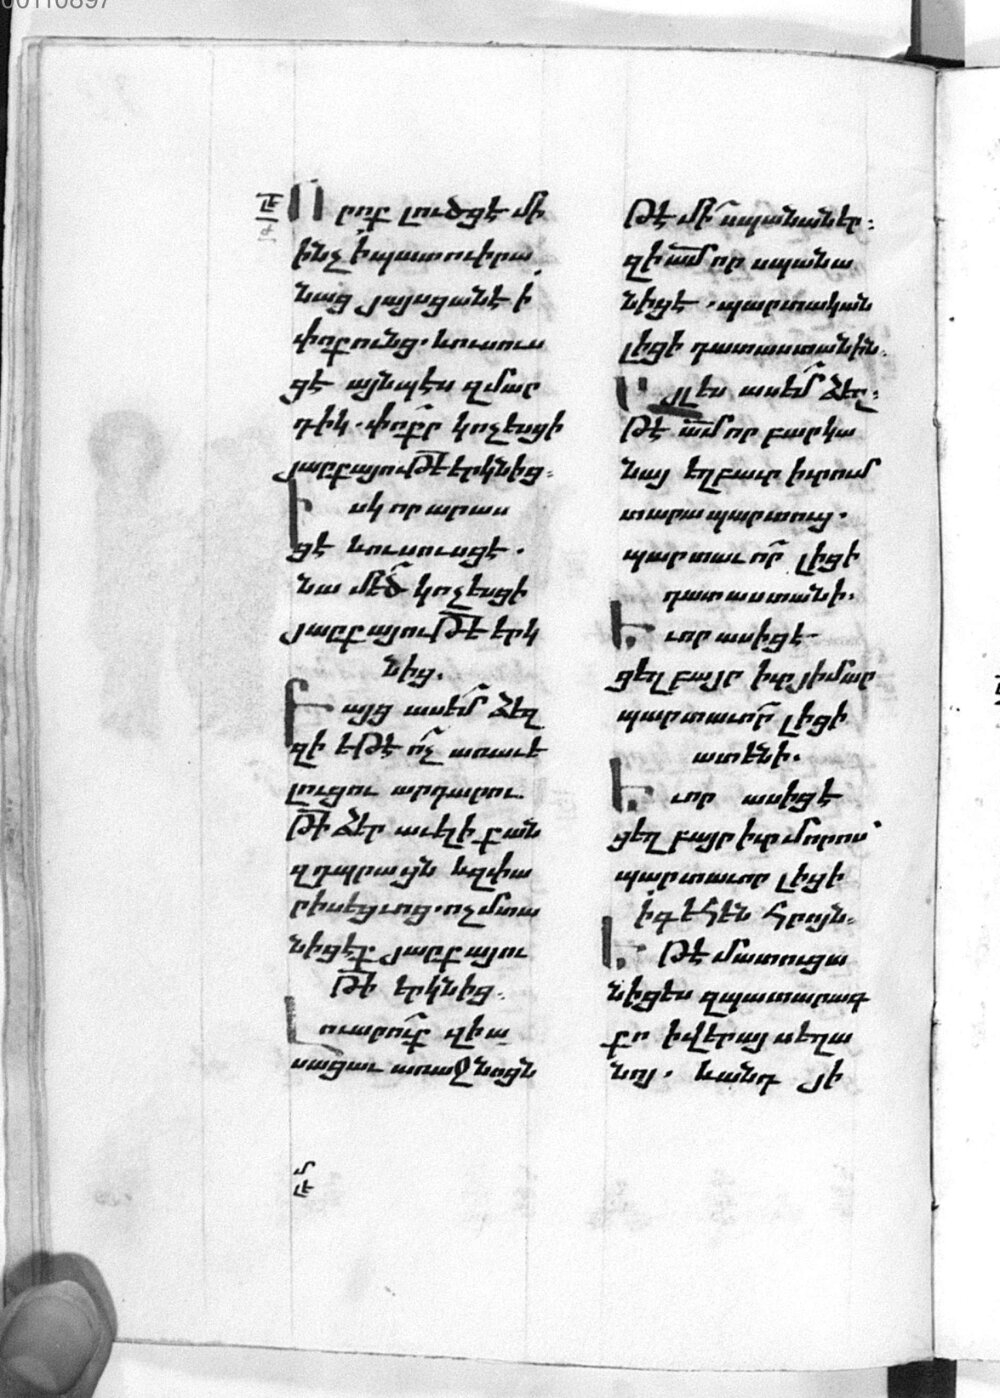 00110897
Որ ոք լուծցէ մի
ինչ ի պատուիրա
նաց յայսցանէ ի
փոքունց. և ուսուս
ցէ այնպէս զմար
դիկ. փոքր կոչեսցի
յարքայութե երկնից։
Իսկ որ արաս
ցէ և ուսուսցէ.
նա մեծ կոչեսցի
յարքայութե երկ
նից.
Բայց ասեմ ձեզ
զի եթէ ոչ առաւե
լուցու արդարու
թի ձեր աւելի քան
զդպրացն և զփա
րիսեցւոց. ոչ մտա
նիցէք յարքայու
թի երկնից։
Լուարուք զի ա
սացաւ առաջնոցն
թէ մի սպանաներ։
զի ամ որ սպանա
նիցէ. պարտական
լիցի դատաստանին.
Այլ ես ասեմ ձեզ։
թէ ամ որ բարկա
նայ եղբաւր իւրում
տարապարտուց.
պարտաւոր լիցի
դատաստանի.
Եւ որ ասիցէ
ցեղբայր իւր յիմար
պարտաւոր լիցի
ատենի.
Եւ որ ասիցէ
ցեղբայր իւր մորոս
պարտաւոր լիցի
ի գեհեն հրոյն։
Եւ թէ մատուցա
նիցես զպատարագ
քո ի վերայ սեղա
նոյ. և անդ յի